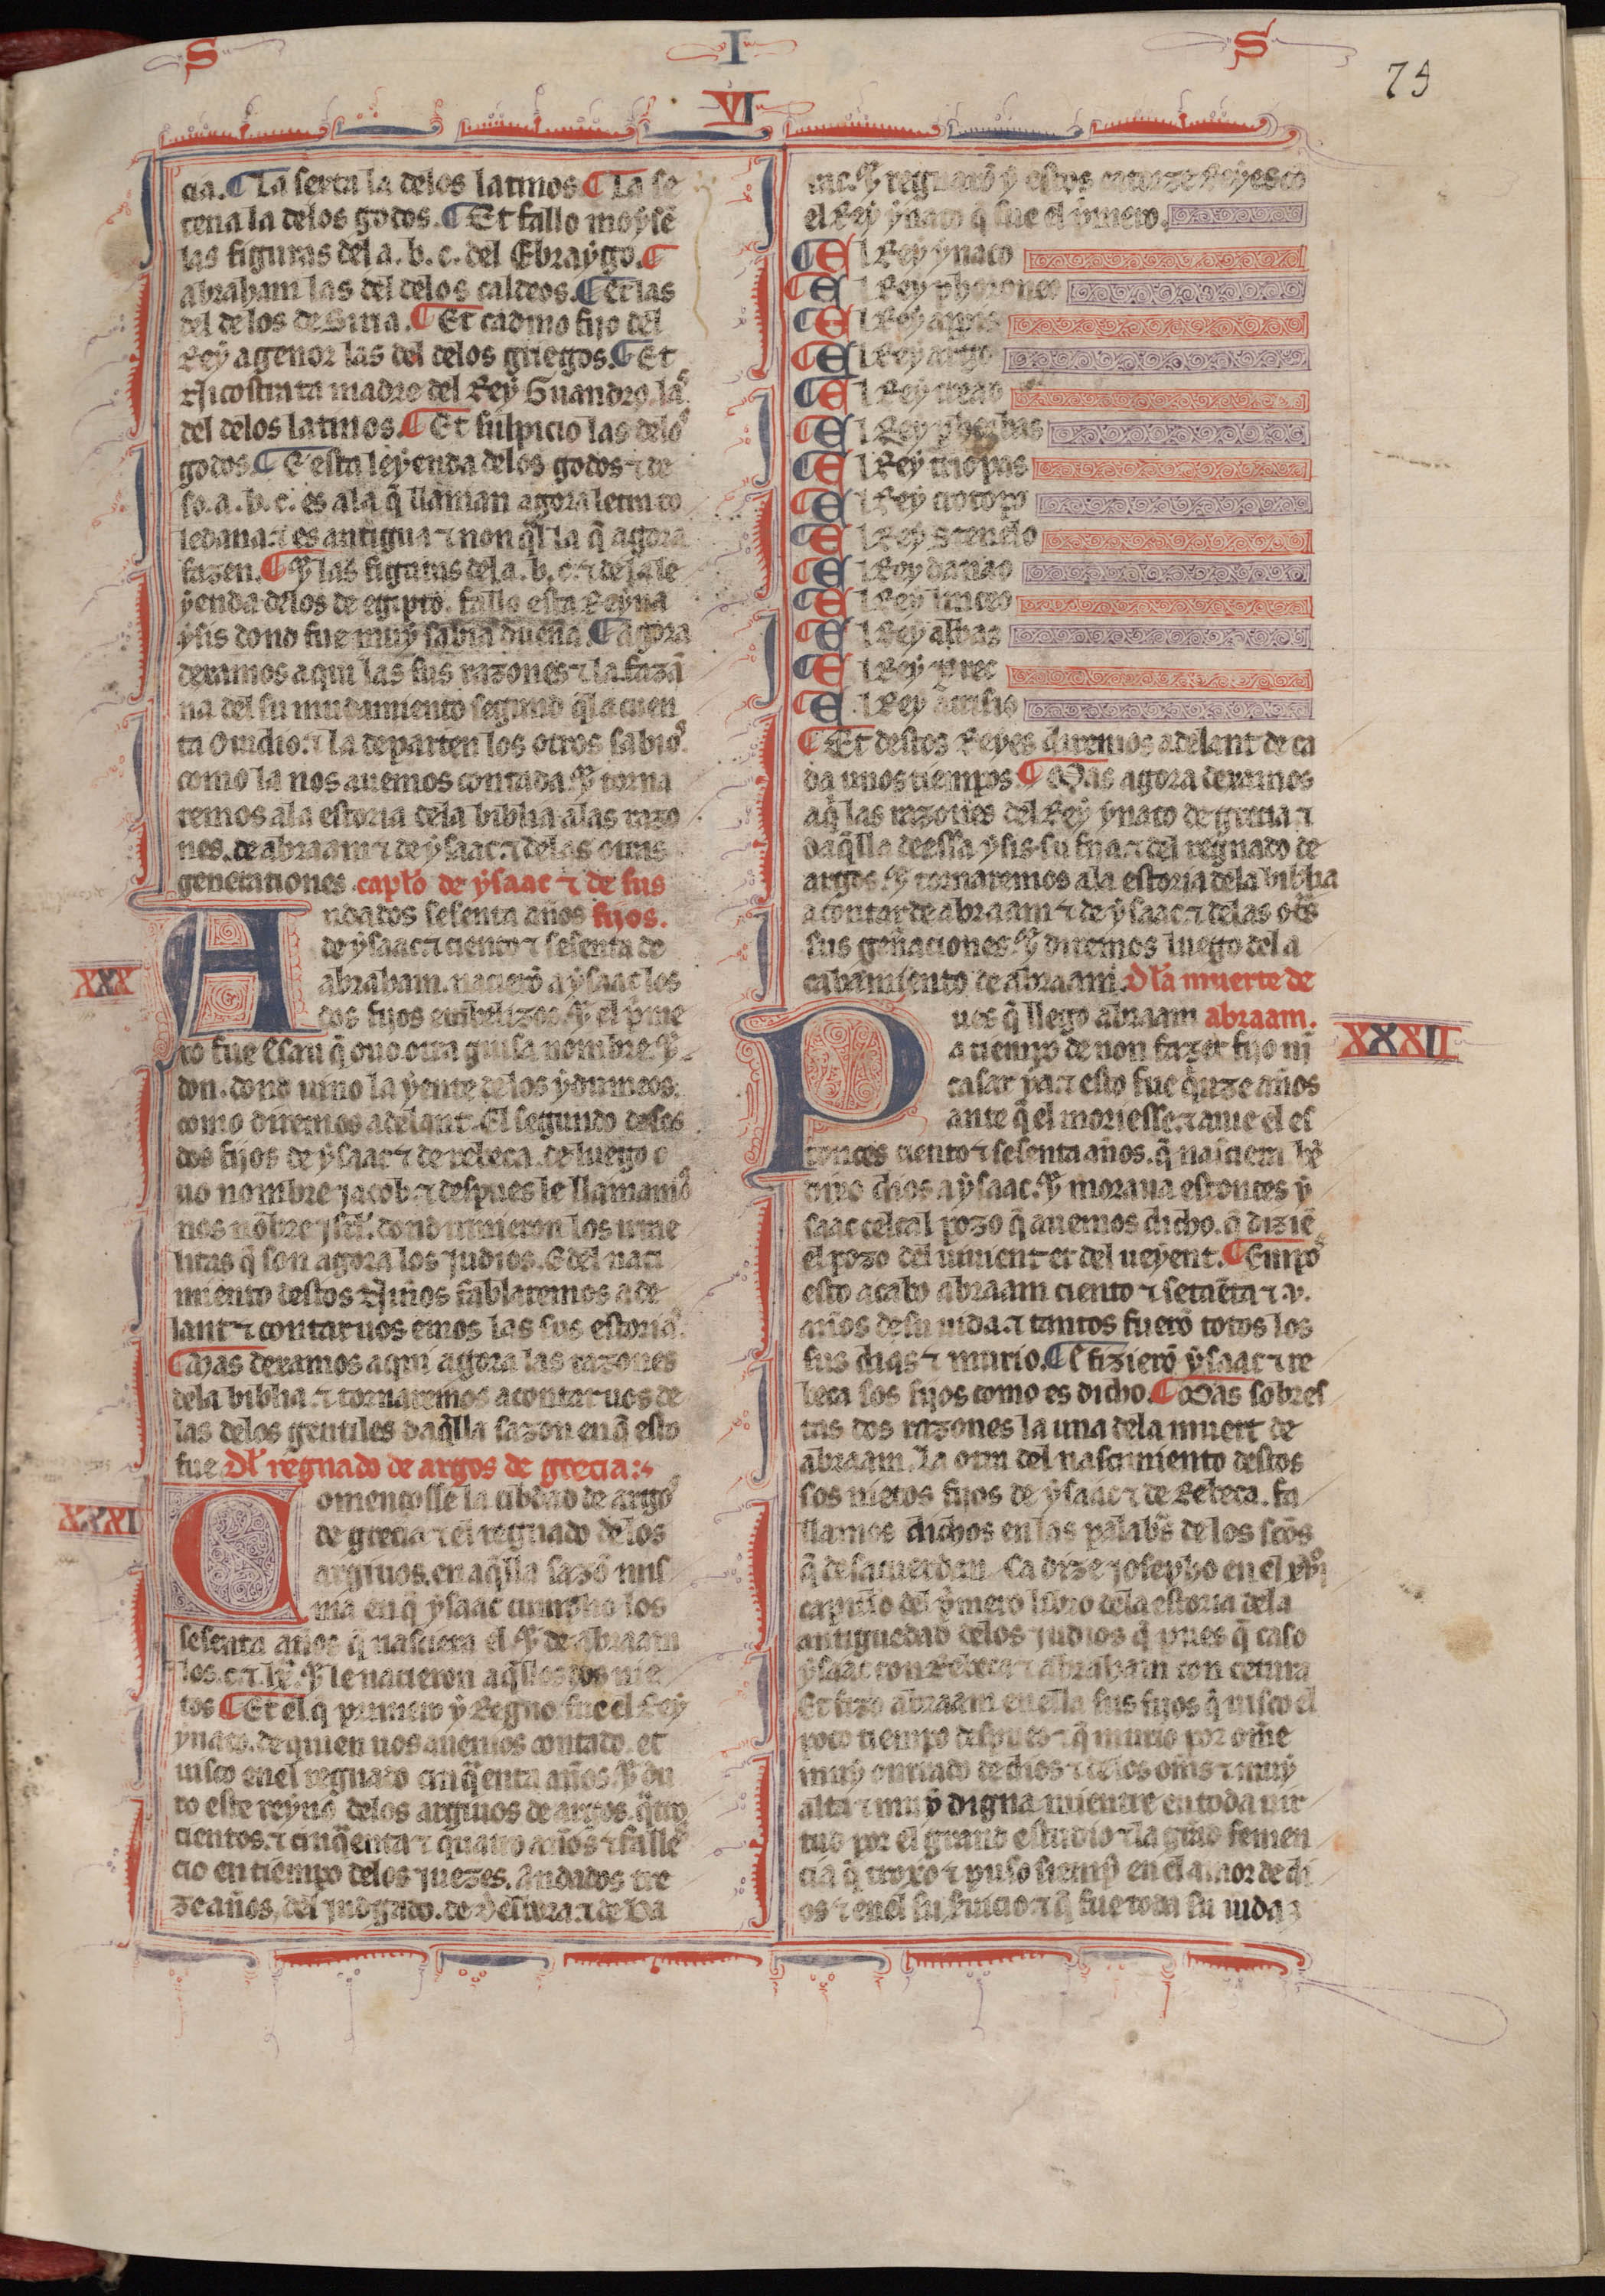 S I S
VI
75
cia. ¶ La sexta la delos latinos. ¶ La se
tena la delos godos. ¶ Et fallo moysē
las figuras del a. b. c. del Ebraygo. ¶
abraham las del delos caldeos. ¶ Et las
del de los de Siria. ¶ Et cadmo fijo del
Rey agenor las del delos griegos. ¶ Et
madre del Rey Euandro. las
del delos latinos. ¶ Et sulpicio las delos
godos. ¶ E esta leyenda delos godos ⁊ de
so. a. b. c. es ala q̄ llaman agora letra to
ledana. ⁊ es antigua ⁊ non q̄lla q̄ agora
fazen. ¶ Y las figuras del a. b. c. ⁊ dela le
yenda delos de egipto. fallo esta Reyna
ysis dond fue muy sabia duena. ¶ agora
dexamos aqui las sus razones ⁊ la fazā
na del su mudamiento segund q̄la cuen
ta Ouidio. ⁊ la departen los otros sabios.
como la nos auemos contada. Y torna
remos ala estoria dela biblia. alas razo
nes. de abraam ⁊ de ysaac. ⁊ delas otras
generationes. caplo de ysaac ⁊ de sus
Andados sesenta años fijos.
de ysaac. ⁊ ciento ⁊ sesenta de
XXX
abraham. nacierō a ysaac los
dos fijos embelizos. Y el p̄me
ro fue Esau q̄ ouo otra guisa nombre. Y
don. dond uino la yente delos ydumeos.
como diremos adelant. El segundo destos
dos fijos de ysaac ⁊ de rebeca. de luego o
uo nombre jacob. ⁊ despues le llamamos
nos nōbre jsrl'. dond uinieron los isrre
litas q̄ son agora los judios. E del naci
miento destos niños fablaremos ade
lant ⁊ contaruos emos las sus estorias.
¶ Mas dexamos aqui agora las razones
dela biblia. ⁊ tornaremos a contaruos de
las delos gentiles daq̄lla sazon en q̄ esto
fue Dl' regnado de argos de grecia:
Comencosse la cibdad de argos
XXXI
de grecia ⁊ el regnado delos
argiuos. en aq̄lla sazō mis
ma en q̄ ysaac cumplio los
sesenta años q̄ nasciera el. Y de abraam
los. c. ⁊ lx. Y le nacieron aq̄llos dos nie
tos ¶ Et el q̄ primero y Regno. fue el Rey
ynaco. de quien uos auemos contado. et
uisco enel regnado cinq̄enta años. Y du
ro este reyno delos argiuos de argos. q̄tro
cientos. ⁊ cinq̄enta ⁊ quatro años ⁊ falle
cio en tiempo delos juezes. Andados tre
ze años. del judgado. de delbora. ⁊ de ba
rac. Y regnarō y estos catorze Reyes cō
el Rey ynaco q̄ fue el p̄mero.
¶ El Rey ynaco
¶ El Rey phoroneo
¶ El Rey apis
¶ El Rey argo
¶ El Rey
¶ El Rey phorbas
¶ El Rey triopas
¶ El Rey crotopo
¶ El Rey Stenelo
¶ El Rey danao
¶ El Rey linceo
¶ El Rey albas
¶ El Rey pret
¶ El Rey acrisio
¶ Et destos Reyes diremos adelant de ca
da unos tiempos. ¶ Mas agora dexamos
aq̄ las razones del Rey ynaco de grecia ⁊
daq̄lla deessa ysis su fija. ⁊ del regnado de
argos. Y tornaremos ala estoria dela biblia
a contar de abraam ⁊ de ysaac. ⁊ delas otrs
sus gen̄aciones. Y diremos luego del a
cabamiento de abraam. Dla muerte de
Pues q̄ llego abraam abraam.
XXXII
a tiempo de non fazer fijo nj
casar ya. ⁊ esto fue q̄nze años
ante q̄ el moriesse. ⁊ auie el es
tonces ciento ⁊ sesenta años. q̄
dios a ysaac. Y moraua estonces y
saac cercal pozo q̄ auemos dicho. q̄ diziē
el pozo del uiuient et del ueyent. ¶ Empos
esto acabo abraam ciento ⁊ setaēta ⁊ .v.
años de su uida. ⁊ tantos fuerō todos los
sus dias ⁊ murio. ¶ E fizierō ysaac ⁊ re
beca sos fijos como es dicho. ¶ Mas sobres
tas dos razones la una dela muert de
abraam. La otra del nascimiento destos
sos nietos fijos de ysaac ⁊ de Rebeca. fa
llamos dichos en las palabs̄ de los scōs
q̄ desacuerdan. Ca dize josepho en el xvjº
capitulo del p̄mero libro dela estoria dela
antiguedad delos judios q̄ pues q̄ caso
ysaac con Rebeca. ⁊ abraham con cetura
Et fizo abraam en ella sus fijos q̄ uisco el
poco tiempo despues ⁊ q̄ murio por om̄e
muy onrrado de dios ⁊ delos om̄s ⁊ muy
alta ⁊ muy digna mientre en toda uir
tud por el grand estudio ⁊ la grād femen
cia q̄ troxo ⁊ puso siemp̄ en el amor de di
os ⁊ enel su seruicio ⁊ q̄ fue toda su uida